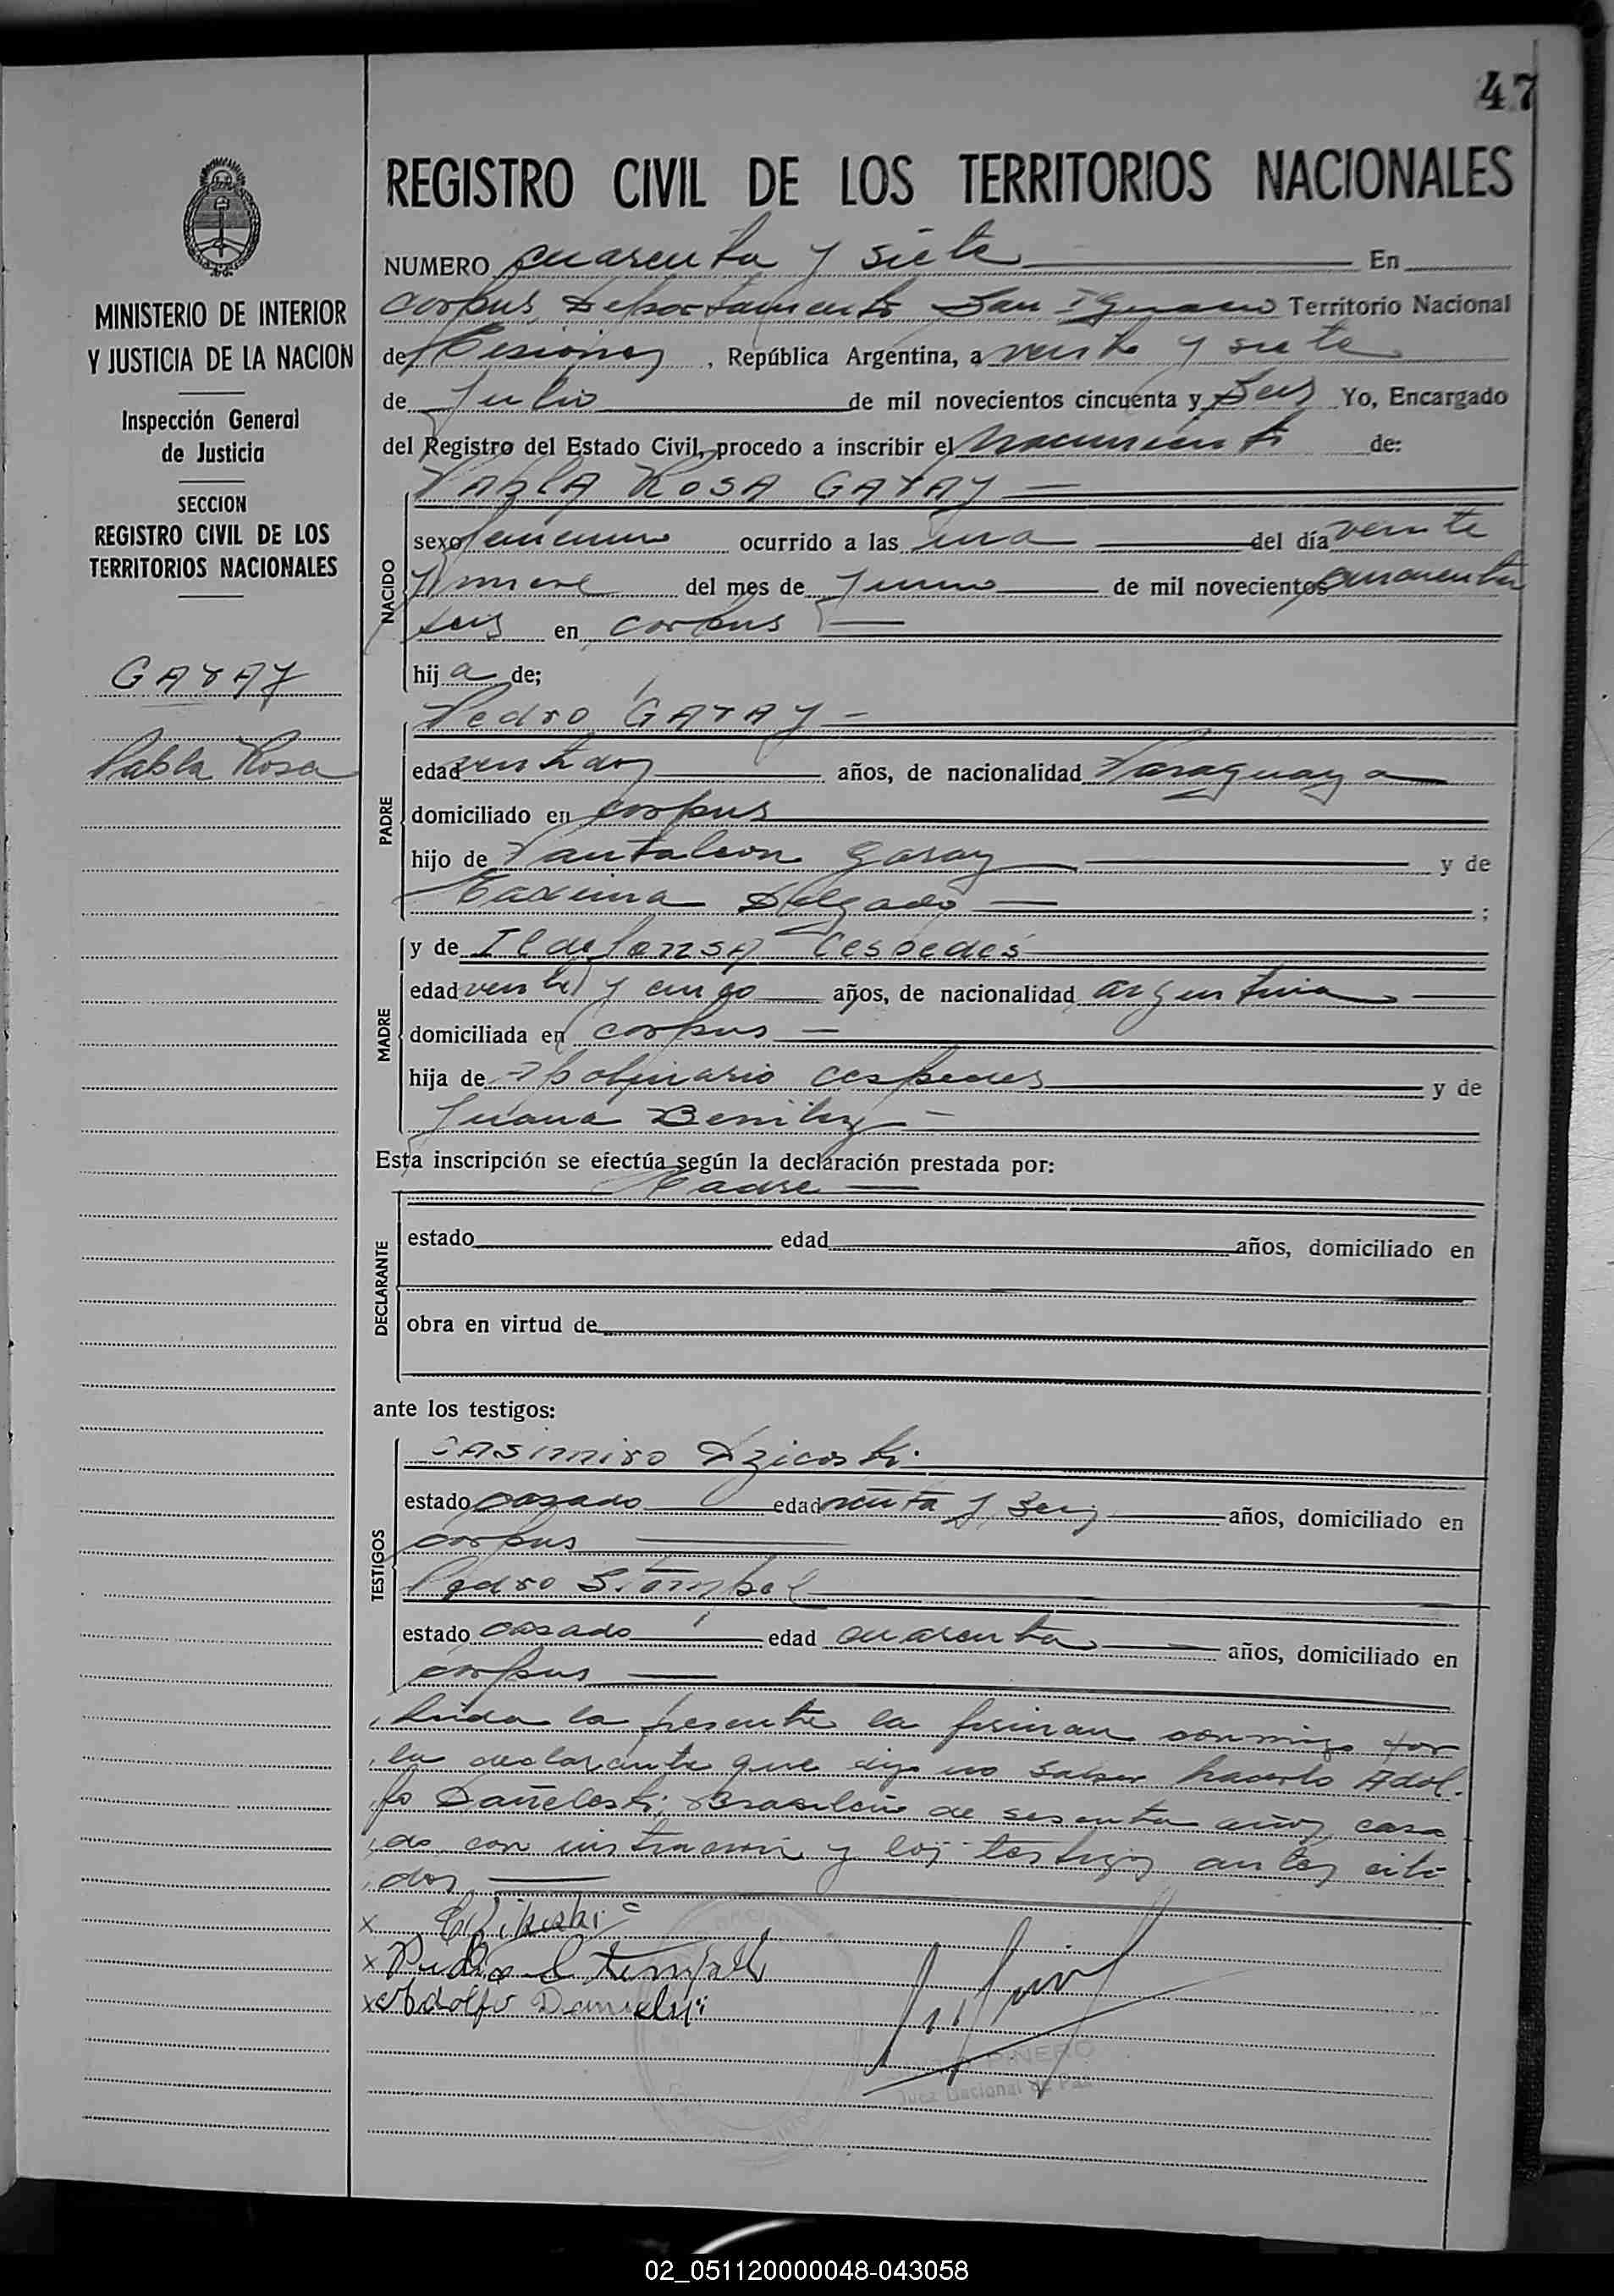 47
REGISTRO CIVIL DE LOS TERRITORIOS NACIONALES
MINISTERIO DE INTERIOR
Y JUSTICIA DE LA NACION
Inspección General
de Justicia
SECCION
REGISTRO CIVIL DE LOS
TERRITORIOS NACIONALES
GARAY
Pabla Rosa
NUMERO cuarenta y siete En
Corpus, Departamento San Ignacio Territorio Nacional
de Misiones, República Argentina, a veinte y siete
de Julio de mil novecientos cincuenta y Seis Yo, Encargado
del Registro del Estado Civil, procedo a inscribir el Nacimiento de:
PABLA ROSA GARAY
NACIDO
sexo femenino ocurrido a las una del día veinte
y nueve del mes de Junio de mil novecientos cuarenta
seis en corpus
hija de;
Pedro GARAY
PADRE
edad años, de nacionalidad Paraguaya
domiciliado en corpus
hijo de Pantaleon Garay y de
Maxima Delgado ;
MADRE
y de Ildefonsa Cespedes
edad veinte y cinco años, de nacionalidad argentina
domiciliada en corpus
hija de Apolinario cespedes y de
Juana Benitez
Esta inscripción se efectúa según la declaración prestada por:
Madre
DECLARANTE
estado edad años, domiciliado en
obra en virtud de
ante los testigos:
TESTIGOS
Casimiro
estado casado edad y Seis años, domiciliado en
corpus
Pedro Stempel
estado casado edad cuarenta años, domiciliado en
corpus
Leida la presente la firman conmigo por
la declarante que dijo no saber hacerlo Adol-
fo Brasileño de sesenta años casa
do con instruccion y los testigos antes cita
dos
x
x Pedro Stempel
x Adolfo Danielski
PIÑERO
Juez Nacional de Paz
02_051120000048-043058